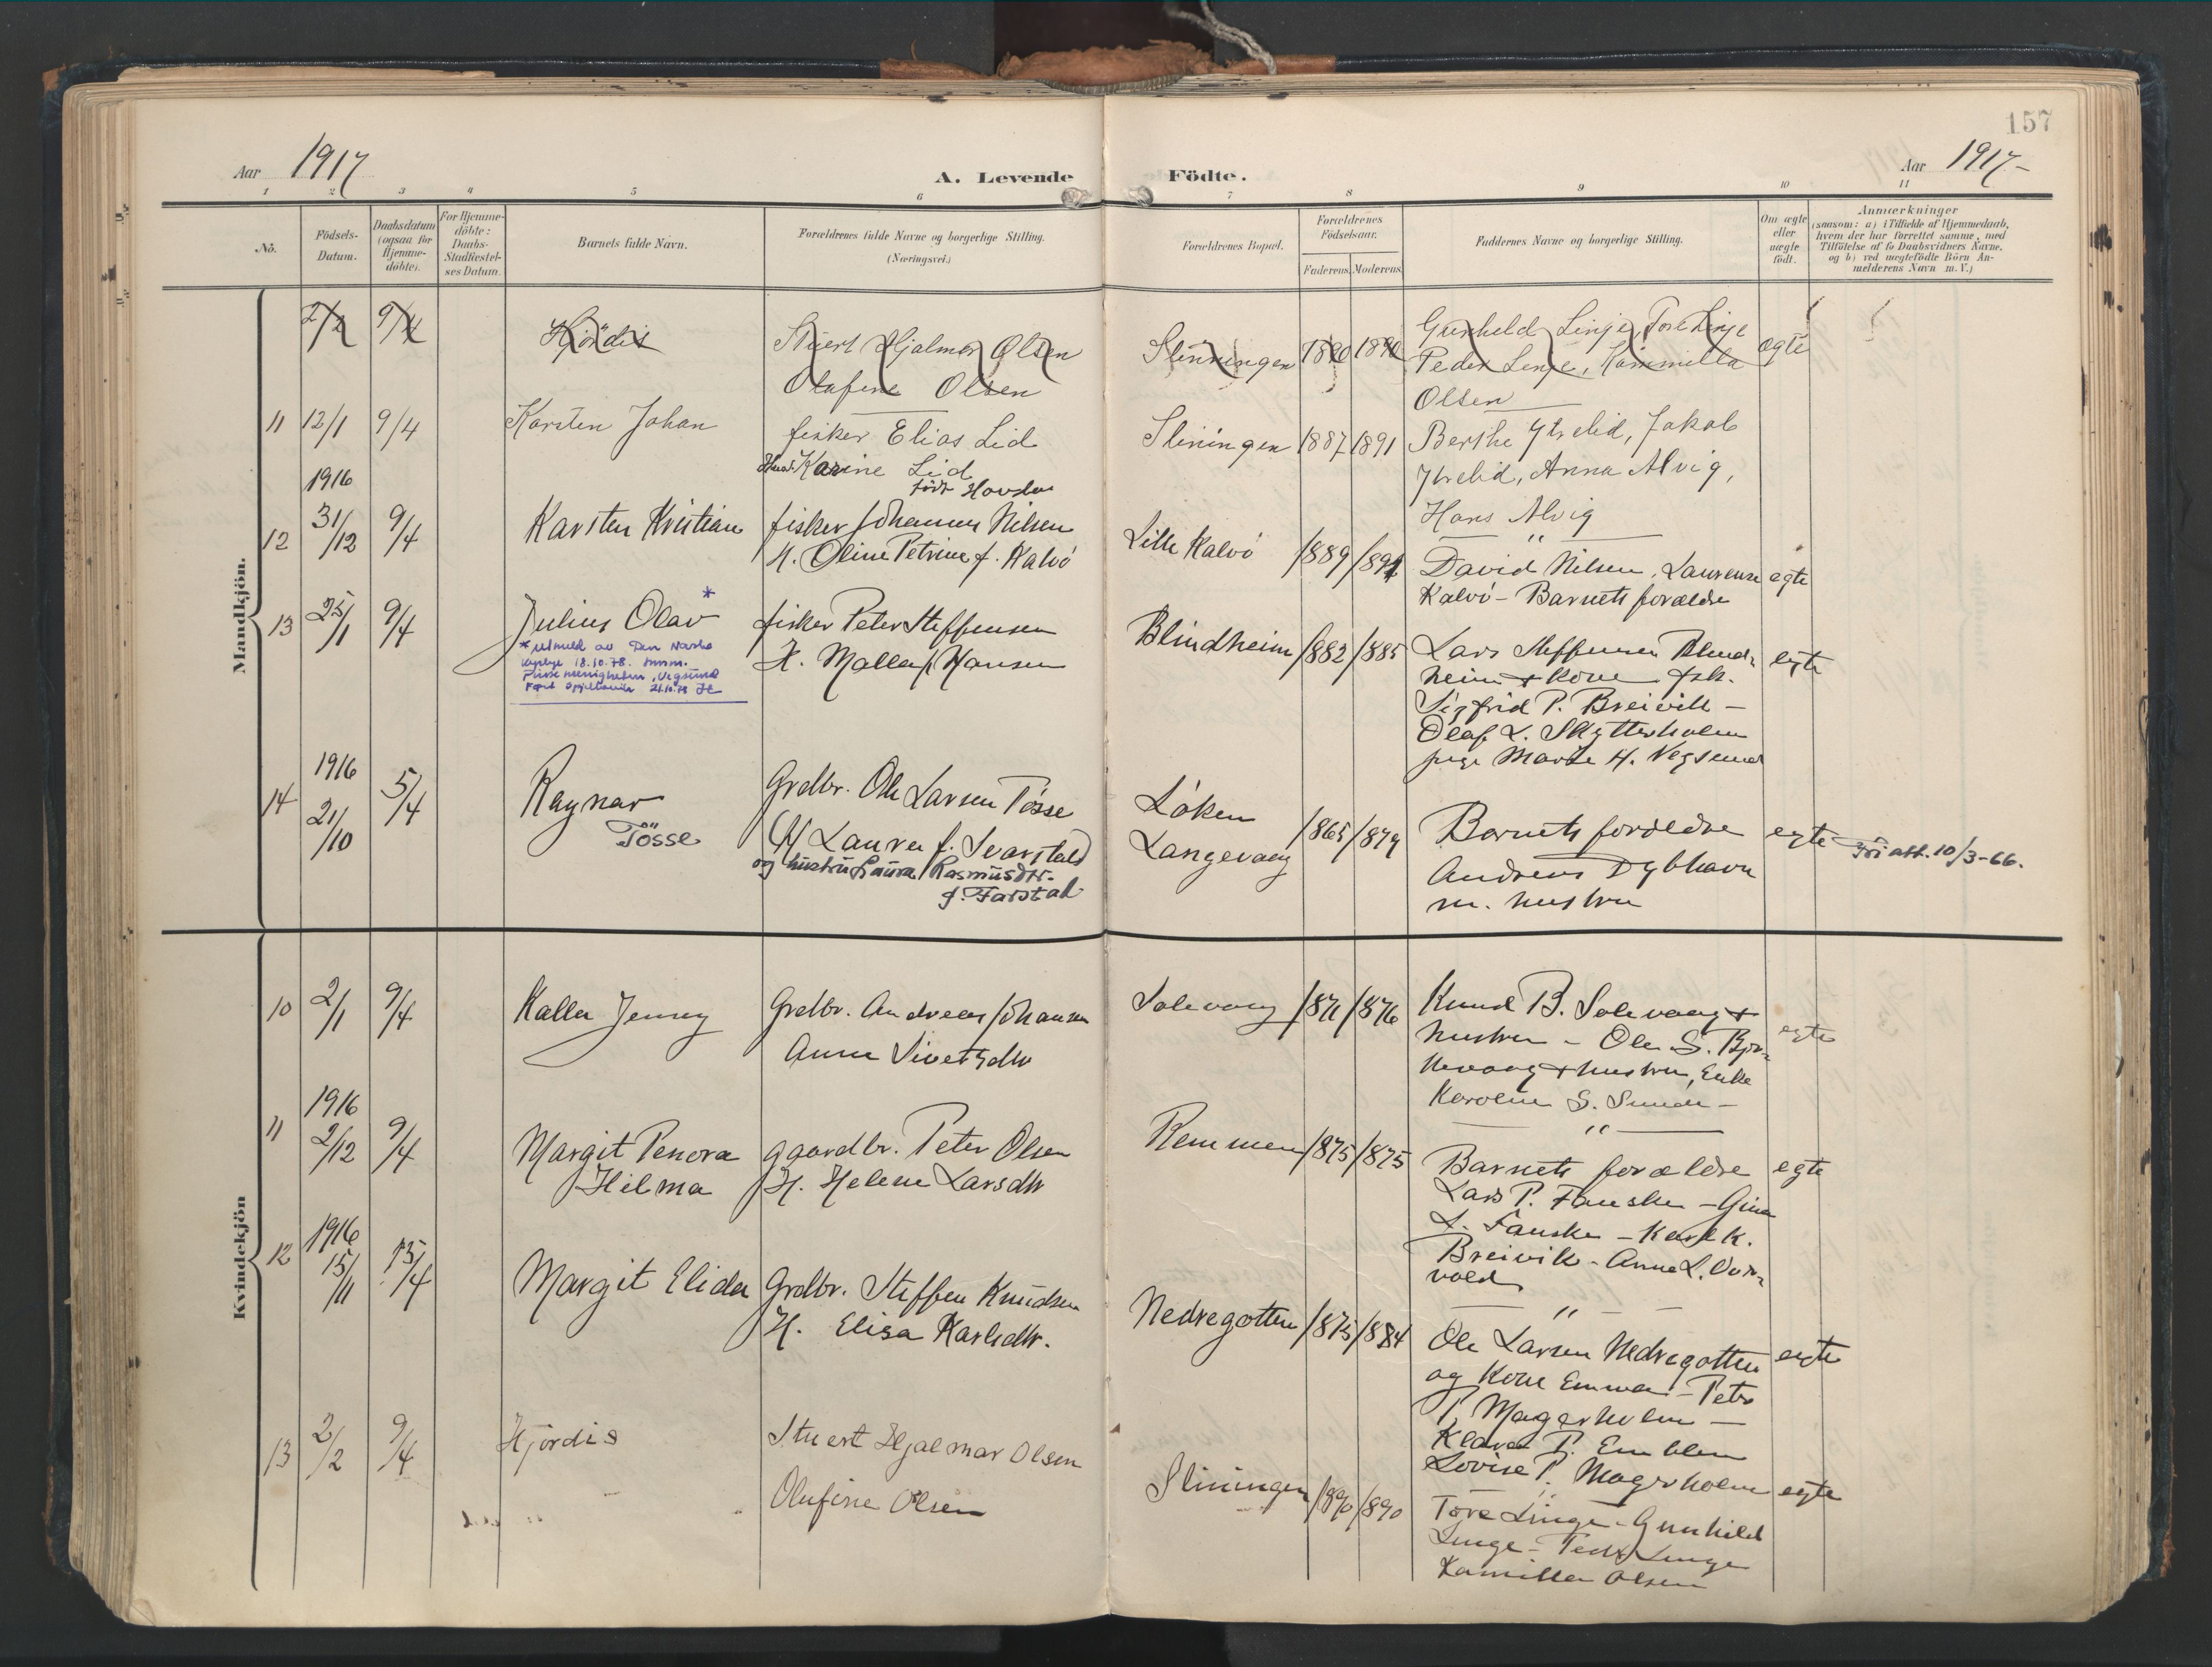 157
Aar 1917
A. Levende Födte.
Aar 1917-
1 2 3 4 5 6 7 8 9 10 11
No.
Födsels-
Datum.
Daabsdatum
(ogsaa for
Hjemme-
döbte).
For Hjemme-
döbte:
Daabs-
Stadfæstel-
ses Datum.
Barnets fulde Navn.
Forældrenes fulde Navne og borgerlige Stilling.
(Næringsvei.)
Forældrenes Bopæl.
Forældrenes
Födselsaar.
Faderens. Moderens.
Faddernes Navne og borgerlige Stilling.
Om ægte
eller
uægte
født.
Anmærkninger
(saasom: a) i Tilfælde af Hjemmedaab,
hvem der har forrettet samme, med
Tilföielse af to Daabsvidners Navne.
og b) ved uægtefödte Börn An-
melderens Navn m. V.)
Mandkjön.
2/2 9/4 Hjördis
Stuert Hjalmar Olsen
Olufine Olsen
Slinningen 1890 1890
Gunhild Linje, Tore Linje
Peder Linje, Kammilla
Olsen
egte
11 12/1 9/4 Karsten Johan
fisker Elias Lid
Hust. Karine Lid
født Hovden
Slinningen 1887 1891
Berthe Ytrelid, Jakob
Ytrelid, Anna Alvig,
Hans Alvig
12 1916
31/12 9/4
Karsten Kristian
fisker Johannes Nilsen
H. Oline Petrine f. Kalvö
Lille Kalvö 1889 1891
"
David Nilsen, Laurense
Kalvö - Barnets forældre
egte
13 25/1 9/4 Julius Olav *
* utmeldt av Den Norske
kirke 18.10.78. Innm.
Pinse menigheten, Vegsund
Ført Spjelkavik 21.10.78
fisker Peter Steffensen
H. Malla f. Hansen
Blindheim 1882 1885
Lars Steffensen Blind-
heim + Kone fsk.
Sigfrid P. Breivik -
Olaf L. Skytterholm
pige Marte H. Vegsund
egte
14 1916
21/10 5/4
Ragnar
Tösse
Grdbr. Ole Larsen Tösse
(H Laura f. Svarstad)
og hustru Laura Rasmusdtr.
f. Farstad
Löken
Langevaag
1865 1879
Barnets foreldre
Andreas Dybhavn
m. hustru
egte
Fri att. 10/3-66.
Kvindekjön
10 2/1 9/4 Kalla Jenny
Grdbr. Andreas Johansen
Anne Sivertsdtr
Solevaag 1871 1876
Knud B. Solevaag +
hustru - Ole S. Bjør-
nevaag + hustru, Enke
Karoline S. Sunde -
egte
11 1916
2/12 9/4
Margit Penora
Hilma
gaardbr. Peter Olsen
H. Helene Larsdtr
Remmen 1875 1875
"
Barnets forældre
Lars P. Fauske - Gina
L. Fauske - Karl K.
Breivik - Anne L. Vor-
vold
egte
12 1916
15/11 15/4
Margit Elida
Grdbr. Steffen Knudsen
H. Elisa Karlsdtr.
Nedregotten 1875 1884
"
Ole Larsen Nedregotten
og Kone Emma - Petra
P Magerholm -
Klara P. Emblem
Lovise P. Magerholm
egte
13 2/2 9/4 Hjördis
Stuert Hjalmar Olsen
Olufine Olsen
Slinningen 1890 1890
Tore Linge - Gunhild
Linge - Peder Linge
Kamilla Olsen
egte